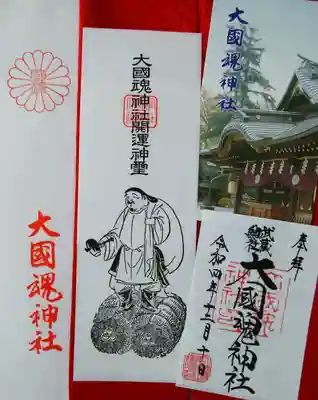 大國魂神社
大國魂神社開運神璽
大國魂神社
奉拝
武蔵総社
大國魂神社
令和四年十二月十日